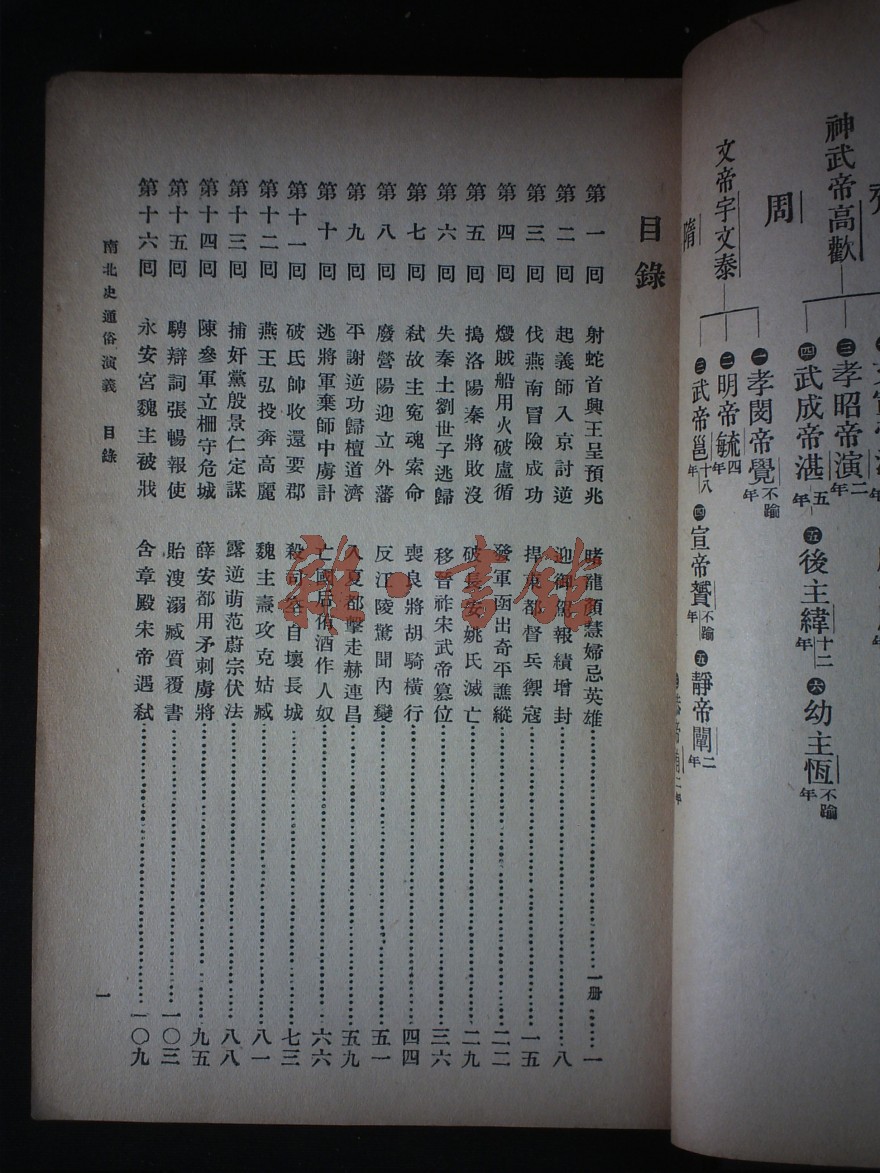 神武帝高歡
㊂孝昭帝演二年
㊃武成帝湛五年
㊄後主緯十二年
㊅幼主恆不踰年
周
文帝宇文泰
㊀孝閔帝覺不踰年
㊁明帝毓四年
㊂武帝邕十八年
㊃宣帝贇不踰年
㊄靜帝闡二年
隋
目錄
第一回 射蛇首興王呈預兆 睹龍顏慧婦忌英雄 一册 一
第二回 起義師入京討逆 迎御駕報績增封 八
第三回 伐燕南冒險成功 捍東都督兵禦寇 一五
第四回 燬賊船用火破盧循 發軍函出奇平譙縱 二二
第五回 搗洛陽秦將敗沒 破長安姚氏滅亡 二九
第六回 失秦土劉世子逃歸 移晉祚宋武帝篡位 三六
第七回 弒故主冤魂索命 喪良將胡騎橫行 四四
第八回 廢營陽迎立外藩 反江陵驚聞內變 五一
第九回 平謝逆功歸檀道濟 入夏都擊走赫連昌 五九
第十回 逃將軍棄師中虜計 亡國后侑酒作人奴 六六
第十一回 破氐帥收還要郡 殺司空自壞長城 七三
第十二回 燕王弘投奔高麗 魏主燾攻克姑臧 八一
第十三回 捕奸黨殷景仁定謀 露逆萌范蔚宗伏法 八八
第十四回 陳參軍立柵守危城 薛安都用矛刺虜將 九五
第十五回 騁辯詞張暢報使 貽溲溺臧質覆書 一〇三
第十六回 永安宮魏主被戕 含章殿宋帝遇弒 一〇九
南北史通俗演義 目錄
一
雜·書館